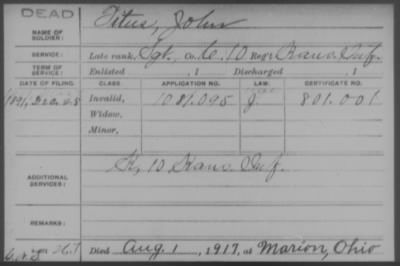 DEAD
NAME OF SOLDIER: Titus, John
SERVICE: Late rank, Sgt., Co. C, 10 Reg't Kans. Inf.
TERM OF SERVICE: Enlisted , 1 Discharged , 1
DATE OF FILING. CLASS. APPLICATION NO. LAW. CERTIFICATE NO.
1891, Dec. 28 Invalid, 1081.095 J. 801.001
Widow,
Minor,
ADDITIONAL SERVICES: K, 10 Kans. Inf.
REMARKS:
Died Aug. 1, 1917, at Marion, Ohio